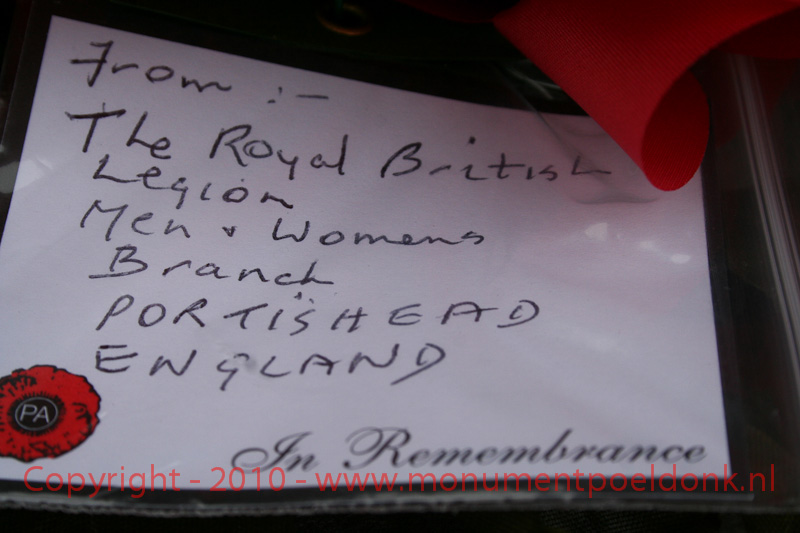 From :-
The Royal British
Legion
Men + Womens
Branch
PORTISHEAD
ENGLAND
PA
In Remembrance
Copyright - 2010 - www.monumentpoeldonk.nl